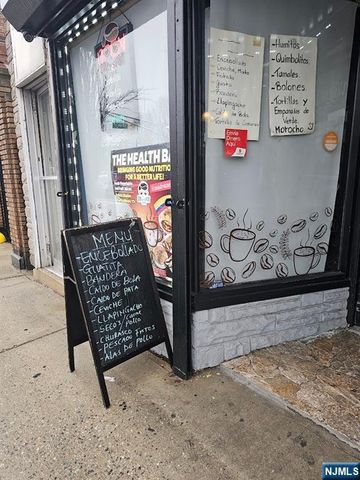 Encebollado
Ceviche, Mixto
Bandera
Guatita
Caldo de Bola
Llapingacho
Tortilla de Camaron
• Humitas
• Quimbolitos
• Tamales
• Bolones
• Tortillas y
Empanadas de
Verde.
Morocho $
Envía
Dinero
Aquí
THE HEALTH BA
BRINGING GOOD NUTRITION
FOR A BETTER LIFE!
MENU
-ENCEBOLLADO
-GUATITA
-BANDERA
-CALDO DE BOLA
-CALDO DE PATA
-CEVICHE
-LLAPINGACHO
-SECO / CARNE
POLLO
-CHURRASCO
-PESCADO FRITOS
-ALAS DE POLLO
NJMLS